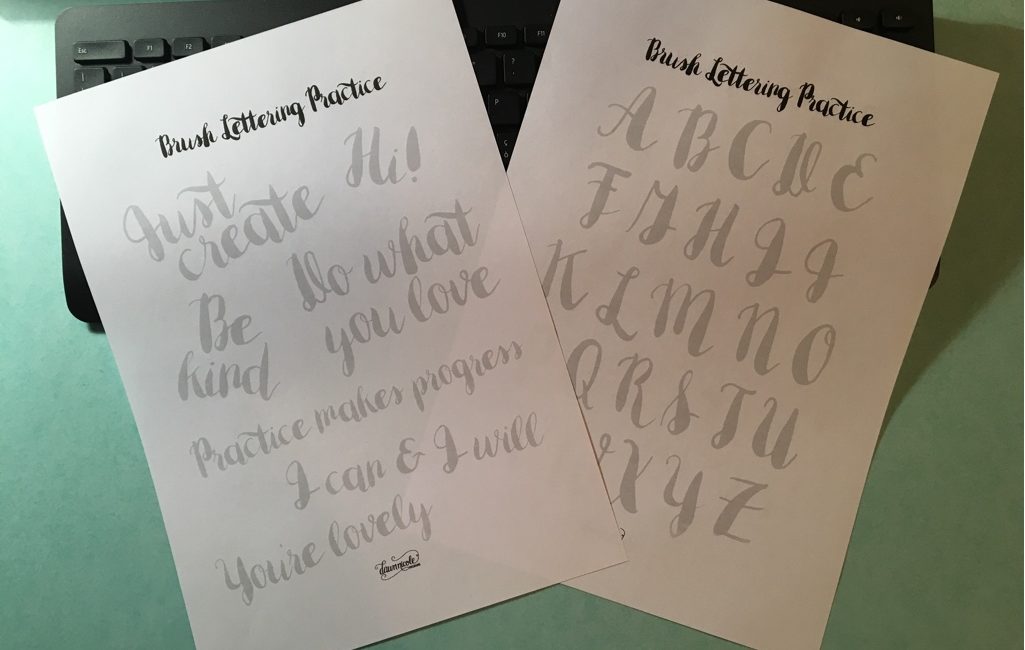 Esc F1 F2 F10 F11
?
P
Brush Lettering Practice
Hi!
Just
create
Do what
you love
Be
kind
Practice makes progress
I can & I will
You're lovely
dawnnicole
Brush Lettering Practice
A B C D E
F G H I J
K L M N O
Q R S T U
X Y Z